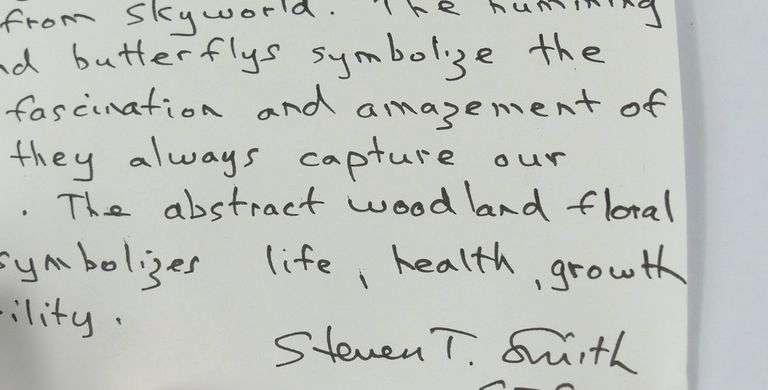 from skyworld. The humming
nd butterflys symbolize the
fascination and amazement of
they always capture our
. The abstract woodland floral
symbolizes life, health, growth
ility.
Steven T. Smith